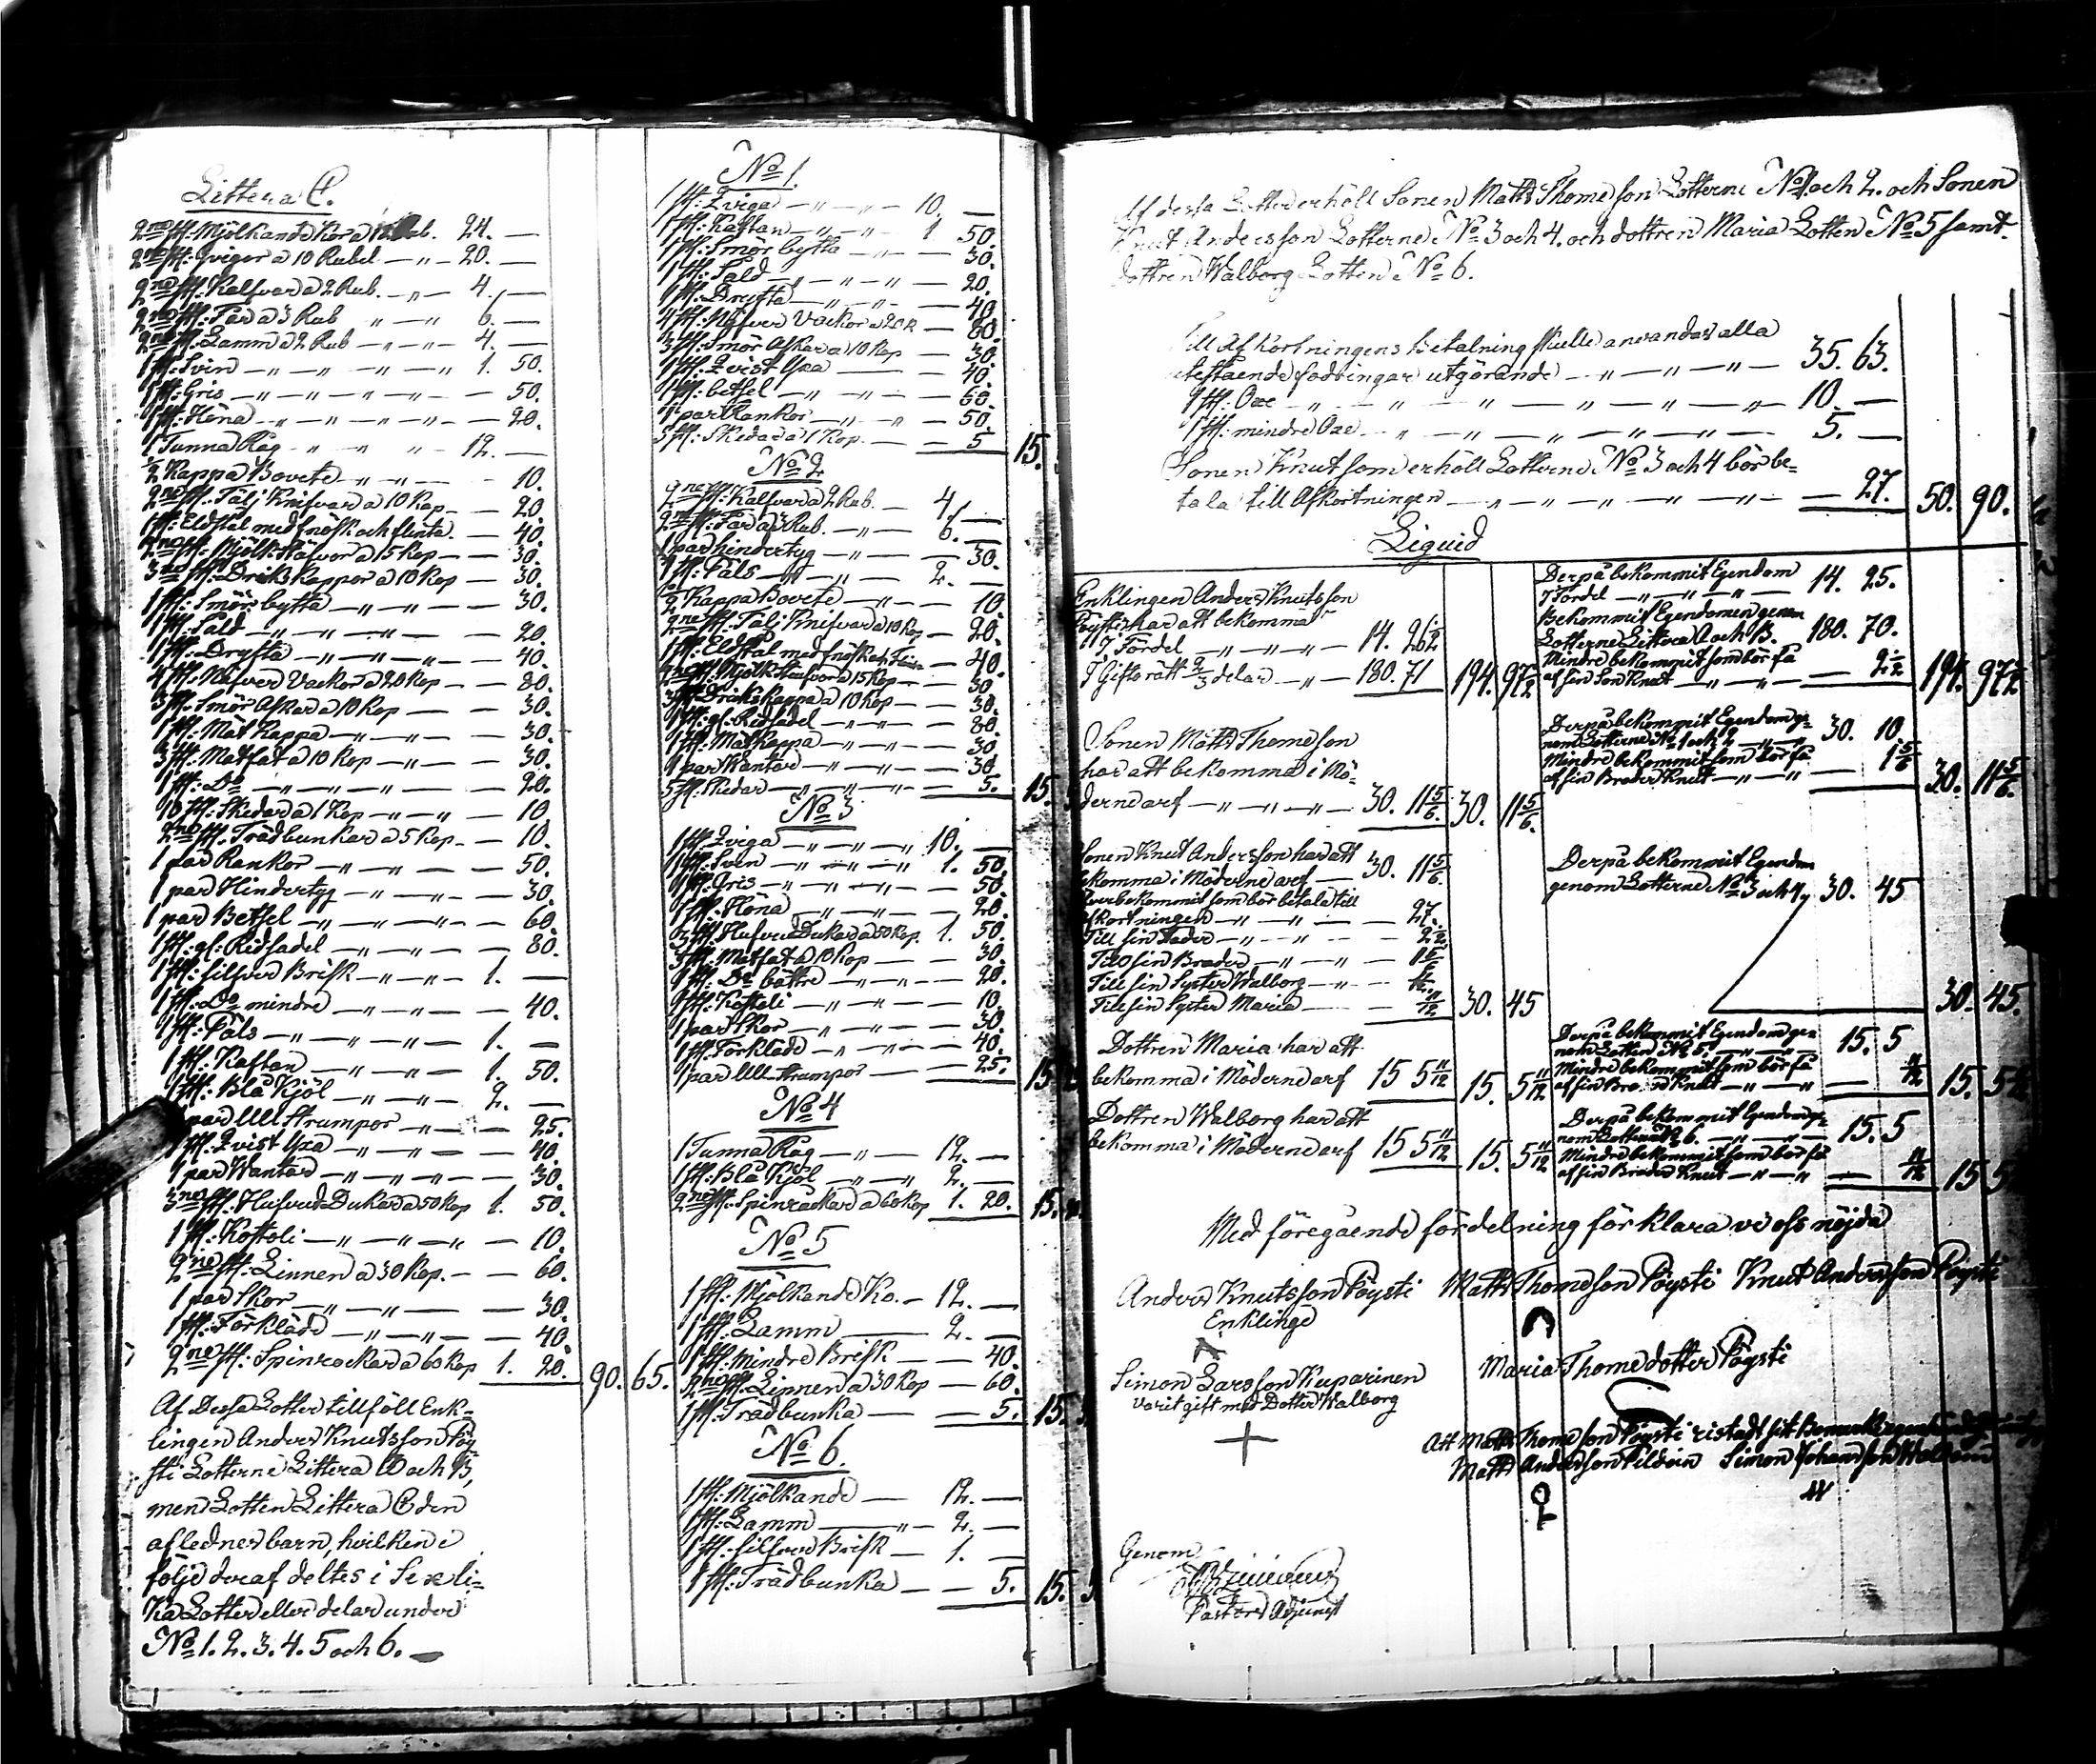 Littera C.
2ne st: Mjölkande Kor a 12 Rub. 24. —
2ne st: Qvigor a 10 Rubel — „ — 20. —
2ne st: Kalfvar a 2 Rub. — „ — 4. —
2ne st: Får a 3 Rub „ — „ 6. —
2ne st: Lamm a 2 Rub — „ — „ — 4. —
1 st: Svin — „ — „ — „ — „ 1. 50.
1 st: Gris — „ — „ — „ — „ — 50.
1 st: Höna — „ — „ — „ — „ — 20.
1 Tunna Råg — „ — „ „ — 12. —
1/2 Kappa Bovete — „ — „ — 10.
2ne st: Tälj Knifvar a 10 Kop — — 20.
1 st: Eldstål med fnösk och flinta. — 40.
2ne st: Mjölk Stäfvor a 15 Kop — — 30.
3ne st: Dricks Kappor a 10 Kop — 30.
1 st: Smör bytta — „ — „ — — 30.
1 st: Såld — „ — „ — „ — 20.
1 st: Dryfta — „ — „ — „ — 40.
4 st: Näfver Vackor a 20 Kop — — 80.
3 st: Smör Askar a 10 Kop — — 30.
1 st: Mat Kappa — „ — „ — 30.
3 st: Matfat a 10 Kop — „ — — 30.
1 st: Do — „ — „ — „ — 20.
10 st: Skedar a 1 Kop — „ — „ — 10
2ne st: Trädbunkar a 5 Kop — — 10.
1 par Rankor — „ — „ — „ — 50.
1 par Hindertyg — „ — „ — — 30.
1 par Betsel — „ — „ — „ — 60.
1 st: gl: Ridsadel — „ — „ — — 80.
1 st: silfver Brisk — „ — „ — 1. —
1 st: Do mindre — „ — „ — — 40.
1 st: Päls — „ — „ — „ — 1. —
1 st: Kaftan — „ — „ — 1. 50.
1 st: Blå Kjöl — „ — „ — 2. —
1 par Ull Strumpor — „ — — 25.
1 st: Qvist Yxa — „ — „ — — 40.
1 par Wantar — „ — „ — — 30.
3ne st: Hufvud Dukar a 50 Kop 1. 50.
1 st: Kostoli — „ — „ — „ — 10.
2ne st: Linnen a 30 Kop. — — 60.
1 par Skor — „ — „ — — 30.
1 st: Förkläde — „ — „ — — 40.
2ne st: Spinrockar a 60 Kop 1. 20. 90. 65.
Af Dessa Lotter tillföll Enk-
lingen Anders Knutsson Pöy-
sti Lotterne Littera A och B,
men Lotten Littera C den
aflednes barn, hvilken i
följe deraf deltes i Sex li-
ka Lotter eller delar under
No 1. 2. 3. 4. 5 och 6. —
No 1.
1 st: Qviga — „ — „ — 10. —
1 st: Kaftan — „ — „ — 1 50.
1 st: Smör bytta — „ — — 30.
1 st: Såld — „ — „ — „ — 20.
1 st: Dryfta — „ — „ — — 40
4 st: Näfver Vackor a 20 K — 80.
3 st: Smör Askar a 10 Kop — 30.
1 st: Qvist Yxa — — 40.
1 st: betsel — „ — „ — — 60.
1 par Rankor — „ — „ — 50.
5 st: Skedar a 1 Kop — — 5 15.
No 2
2ne st: Kalfvar a 2 Rub. — 4. —
2ne st: Får a 3 Rub. — „ — 6. —
1 par hindertyg — „ — — 30.
1 st: Päls — „ — „ — 2. —
1/2 Kappa Bovete — „ — — 10.
2ne st: Tälj Knifvar a 10 Kop — 20.
1 st: Eldstål med fnösk — 40.
2ne st: Mjölk Stäfvor a 15 Kop — — 30
3 st: Dricks Kappa a 10 Kop — — 30.
1 st: gl: Ridsadel — „ — „ — 80.
1 st: Mat Kappa — „ — „ — 30
1 par Wantar — „ — „ — 30
5 st: Skedar — „ — „ — 5. 15.
No 3
1 st: Qviga — „ — „ — „ 10. —
1 st: Svin — „ — „ — „ 1. 50.
1 st: Gris — „ — „ — „ — 50.
1 st: Höna — „ — „ — — 20.
3 st: Hufvud Dukar a 50 Kop. 1. 50.
3 st: Matfat a 10 Kop — — 30.
1 st: Do bättre — „ — „ — 20.
1 st: Kostoli — „ — „ — — 10.
1 par Skor — „ — „ — — 30.
1 st: Förkläde — „ — „ — — 40.
1 par Ull Strumpor — — 25. 15.
No 4
1 Tunna Råg — „ — 12. —
1 st: Blå Kjöl — „ — „ 2. —
2ne st: Spinrockar a 60 Kop 1. 20. 15.
No 5
1 st: Mjölkande Ko. — 12. —
1 st: Lamm — 2. —
1 st: mindre Brisk — — 40.
2ne st: Linnen a 30 Kop — 60.
1 st: Trädbunka — — 5. 15.
No 6.
1 st: Mjölkande — 12. —
1 st: Lamm — „ — 2. —
1 st: silfver Brisk — 1. —
1 st: Trädbunka — — 5. 15.
Af dessa Lotter erhöll Sonen Matts Thomesson Lotterne No 1 och 2. och Sonen
Knut Andersson Lotterne No 3 och 4. och dottren Maria Lotten No 5 samt
dottren Walborg Lotten No 6.
Till Afkortningens betalning skulle användas alla
utestående fodringar utgörande — „ — „ — „ — 35. 63.
1 st: Oxe — „ — „ — „ — „ — „ — 10. —
1 st: mindre Oxe — „ — „ — „ — „ — 5. —
Sonen Knut som erhöll Lotterne No 3 och 4 bör be-
tala till Afkortningen — „ — „ — „ — „ — 27. 50. 90.
Liquid
Enklingen Anders Knutsson
Pöysti har att bekomma
I Fördel — „ — „ — „ — 14. 26 1/2
I Giftorätt 2/3 delar — „ — 180. 71 194. 97 1/2
Derpå bekommit Egendom
I Fördel — „ — „ — „ — 14. 25.
Bekommit Egendomen genom
Lotterne Littera A och B. 180. 70.
Mindre bekommit som bör få
af sin Son Knut — „ — „ — 2 1/2 194. 97 1/2
Sonen Matts Thomesson
har att bekomma i Mö-
derne arf — „ — „ — „ — 30. 11 5/6. 30. 11 5/6.
Derpå bekommit Egendom ge-
nom Lotterne No 1 och 2 — „ — 30. 10.
Mindre bekommit som bör få
af sin Broder Knut — „ — „ — 1 5/6 30. 11 5/6.
Sonen Knut Andersson har att
bekomma i Möderne arf — 30. 11 5/6.
Öfverbekommit som bör betala till
afkortningen — „ — „ — — 27.
Till sin Fader — „ — „ — — 2 1/2
Till sin Broder — „ — „ — 1 5/6
Till sin Syster Walborg — „ — 11/12
Till sin Syster Maria — — 11/12 30. 45
Derpå bekommit Egendom
genom Lotterne No 3 och 4 30. 45
30. 45.
Dottren Maria har att
bekomma i Möderne arf 15 5 11/12 15. 5 11/12
Derpå bekommit Egendom ge-
nom Lotten No 5. — „ — „ — 15. 5
Mindre bekommit som bör få
af sin Broder Knut — „ — „ — 11/12 15. 5
Dottren Walborg har att
bekomma i Möderne arf 15 5 11/12 15. 5 11/12
Derpå bekommit Egendom ge-
nom Lotten No 6. — „ — „ — 15. 5
Mindre bekommit som bör få
af sin Broder Knut — „ — „ — 11/12 15 5
Med föregående fördelning förklara vi oss nöjda
Anders Knutsson Pöysti Matts Thomesson Pöysti Knut Andersson Pöysti
Enkling
Simon Larsson Kuparinen Maria Thomedotter Pöysti
varit gift med Dotter Walborg
Att Matts Thomesson Pöysti ristadt sitt Bomerke
Matts Andersson Simon Johansson
Genom
Pastors Adjunct